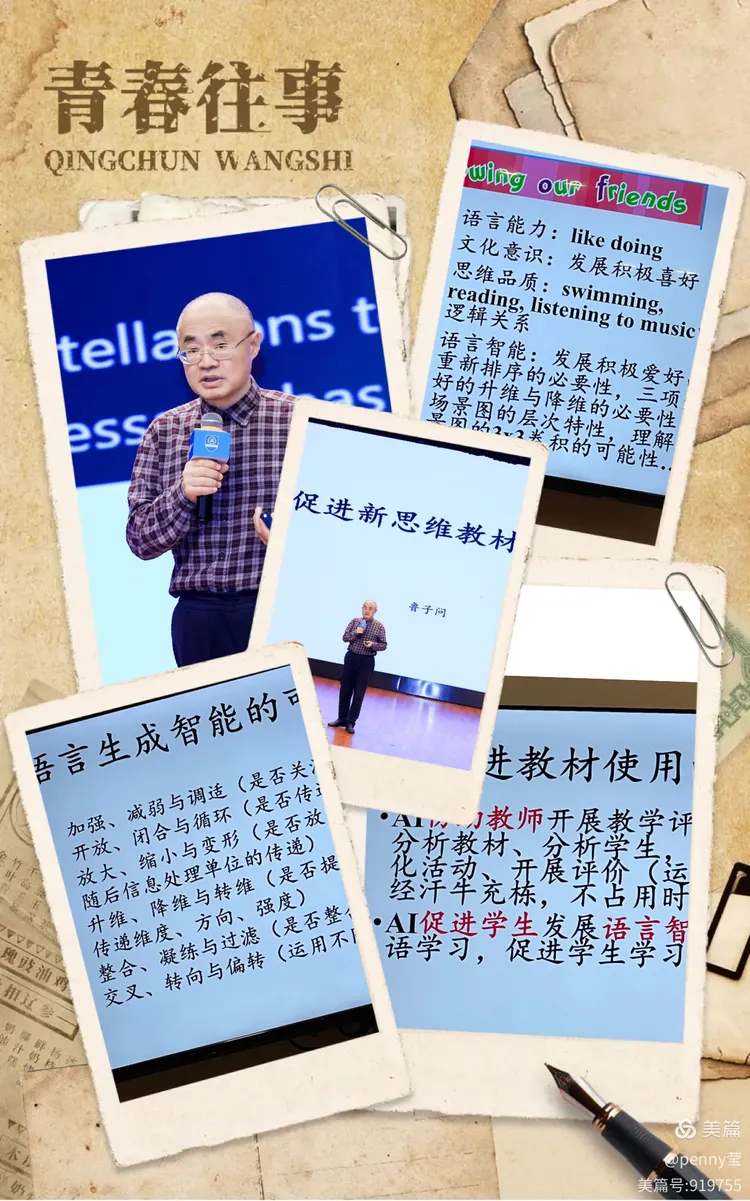 青春往事
QINGCHUN WANGSHI
wing our friends
语言能力：like doing
文化意识：发展积极喜好
思维品质：swimming,
reading, listening to music
逻辑关系
语言智能：发展积极爱好
重新排序的必要性，三项
好的升维与降维的必要性
场景图的层次特性，理解
景图的3x3卷积的可能性...
tella ons t
ess has
促进新思维教材
鲁子问
语言生成智能的可
加强、减弱与调适（是否关注
开放、闭合与循环（是否传递
放大、缩小与变形（是否放
随后信息处理单位的传递）
升维、降维与转维（是否提
传递维度、方向、强度）
整合、凝练与过滤（是否整合
交叉、转向与偏转（运用不同
进教材使用
•AI协助教师开展教学评
分析教材、分析学生、
化活动、开展评价（运
经汗牛充栋，不占用时
•AI促进学生发展语言智
语学习，促进学生学习
美篇
@penny莹
美篇号:919755